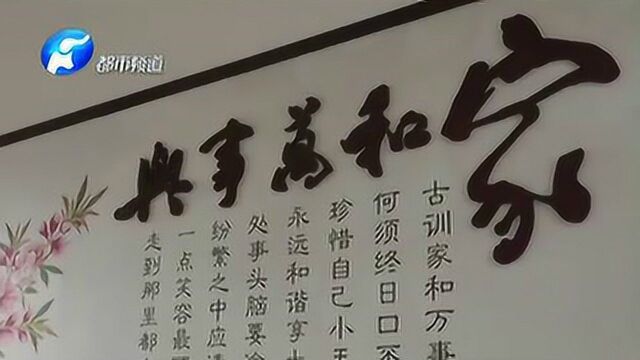 都市频道
家和萬事興
古训家和万事
何须终日口
珍惜自己小
永远和谐享
处事头脑要
纷繁之中应
一点笑容最
走到那里都